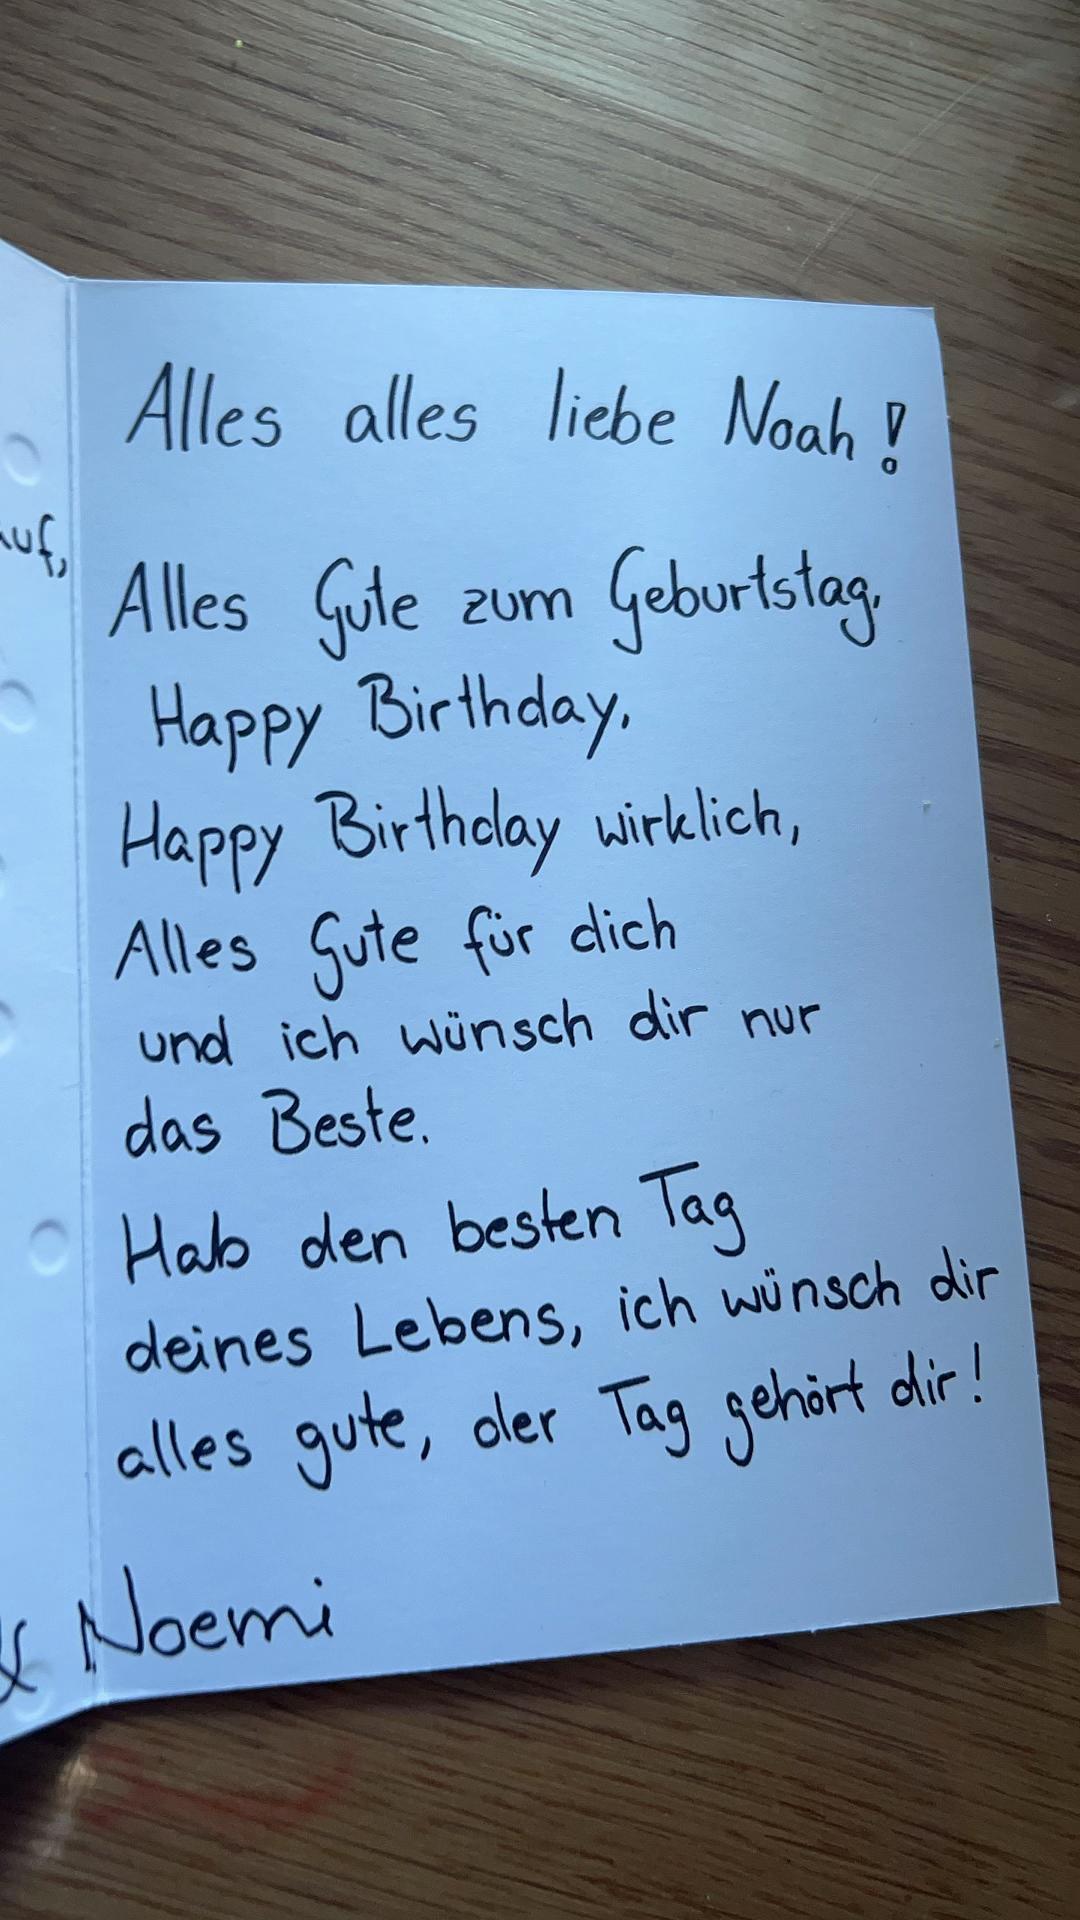 Alles alles liebe Noah!
Alles Gute zum Geburtstag,
Happy Birthday,
Happy Birthday wirklich,
Alles Gute für dich
und ich wünsch dir nur
das Beste.
Hab den besten Tag
deines Lebens, ich wünsch dir
alles gute, der Tag gehört dir!
& Noemi